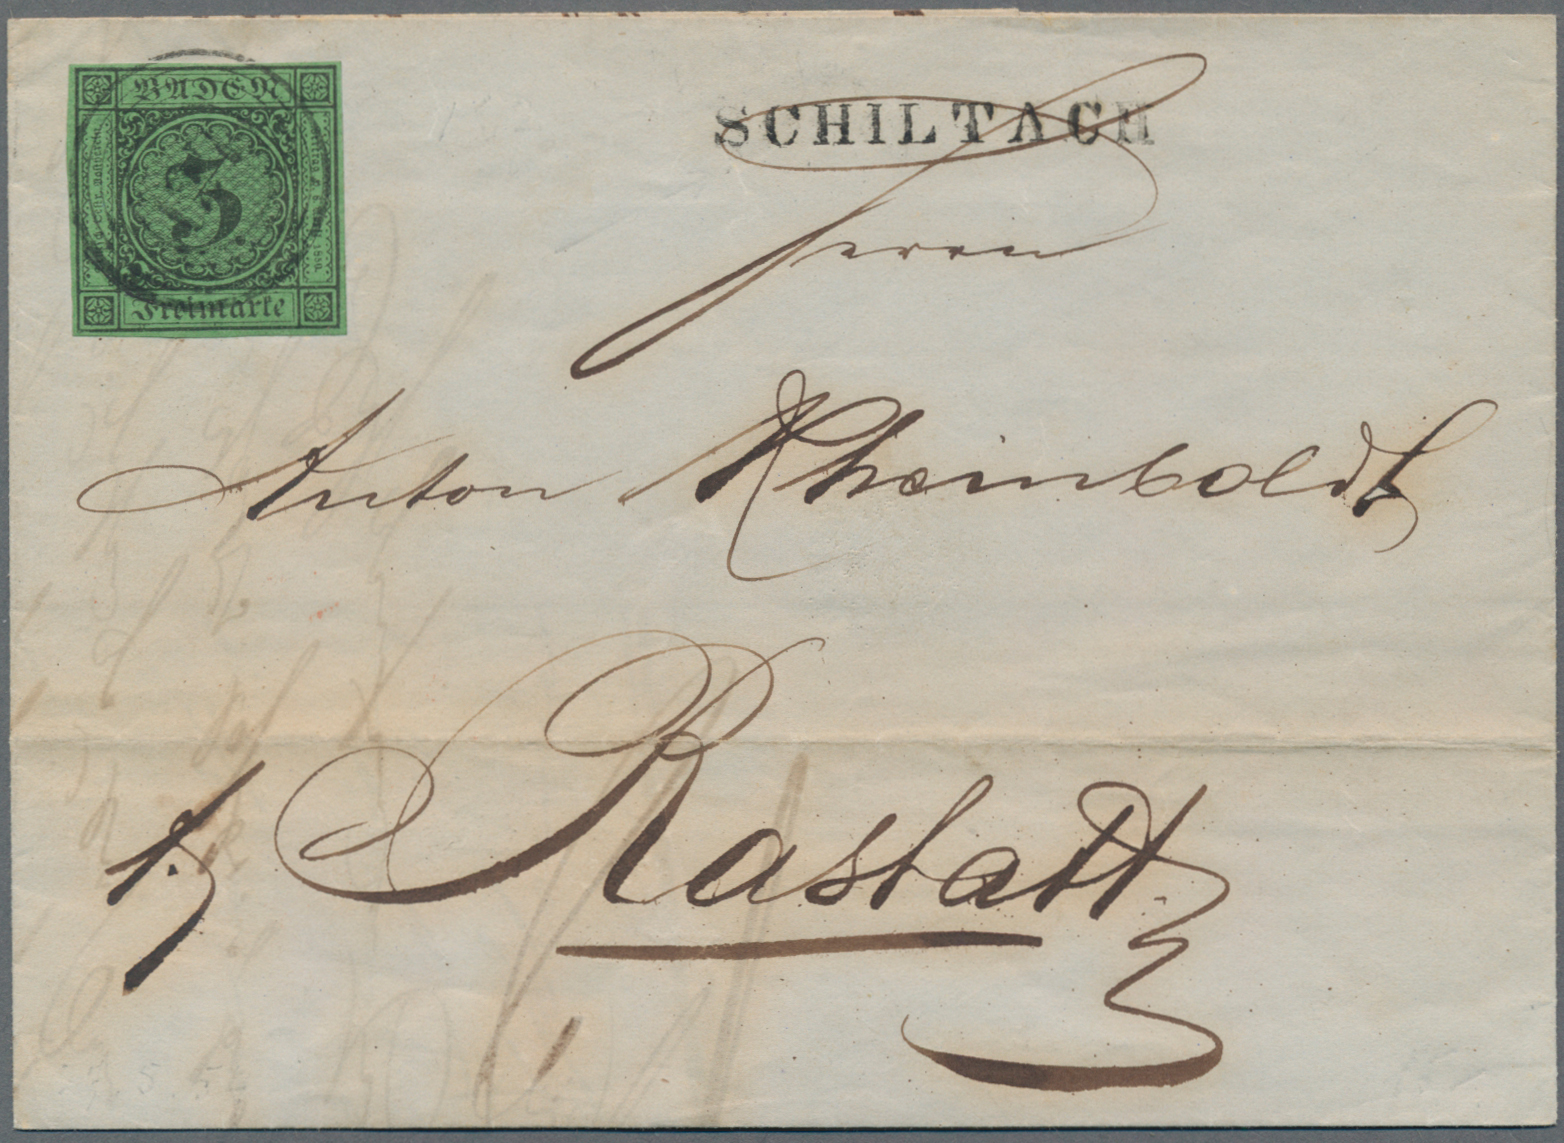 BADEN
3
Freimarke
SCHILTACH
Herrn
Anton Rheinboldt
Rastatt